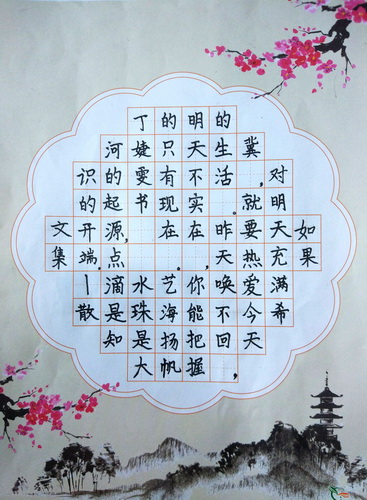 如果
对明天充满希
冀，就要热爱今天
的生活。昨天唤不回，
明天不实在，你能把握
的只有现在。艺海扬帆
丁婕雯书 水珠是大
河的起源，点滴是知
识的开端。丨散
文集